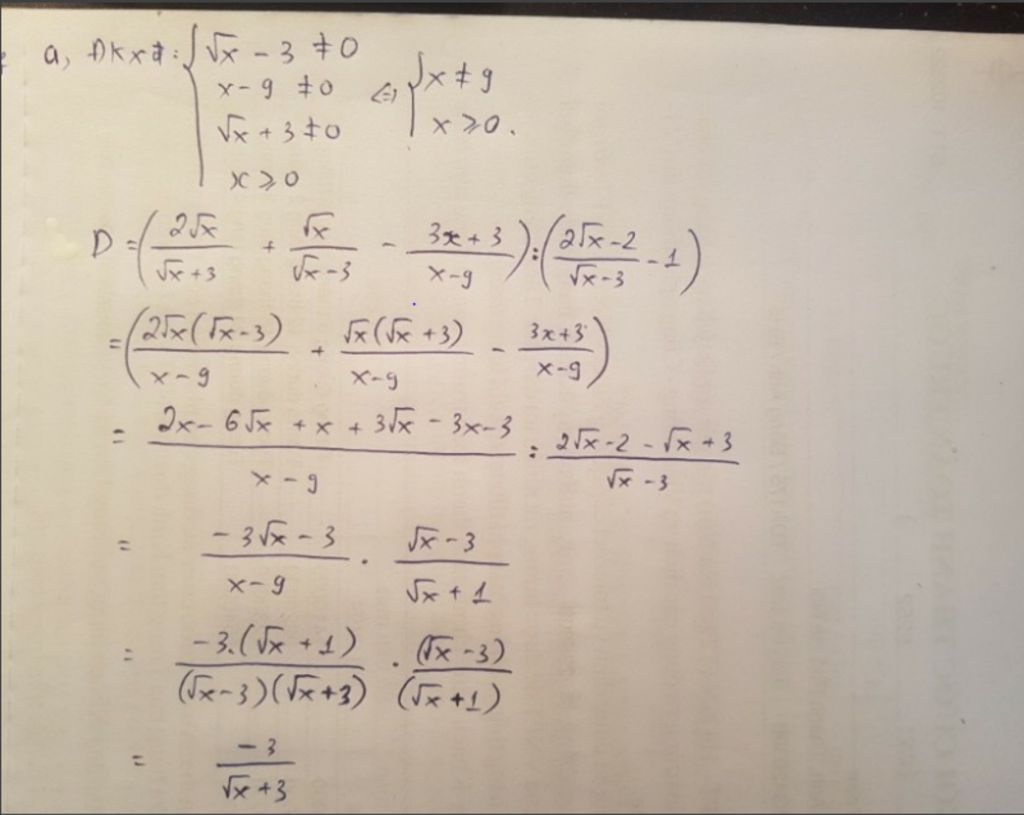 a, ĐKXĐ: { √x - 3 ≠ 0
x - 9 ≠ 0 <=> { x ≠ 9
√x + 3 ≠ 0 x ⩾ 0.
x ⩾ 0
D = (2√x/(√x + 3) + √x/(√x - 3) - (3x + 3)/(x - 9)) : ((2√x - 2)/(√x - 3) - 1)
= (2√x(√x - 3)/(x - 9) + √x(√x + 3)/(x - 9) - (3x + 3)/(x - 9))
= (2x - 6√x + x + 3√x - 3x - 3)/(x - 9) : (2√x - 2 - √x + 3)/(√x - 3)
= (-3√x - 3)/(x - 9) . (√x - 3)/(√x + 1)
= -3.(√x + 1)/((√x - 3)(√x + 3)) . (√x - 3)/(√x + 1)
= -3/(√x + 3)